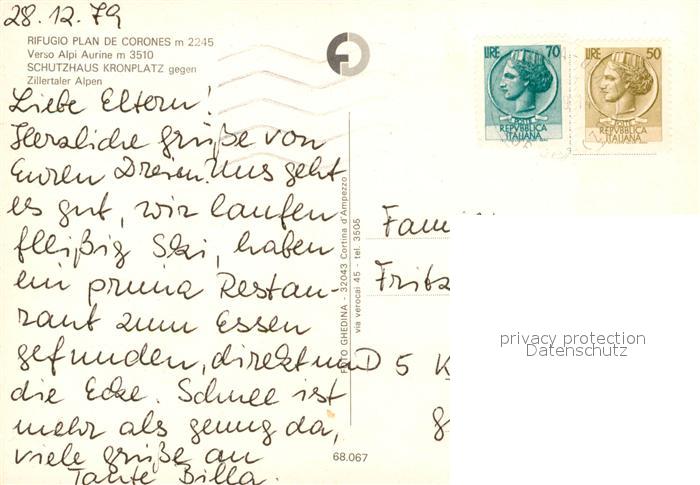 28.12.79
RIFUGIO PLAN DE CORONES m 2245
Verso Alpi Aurine m 3510
SCHUTZHAUS KRONPLATZ gegen
Zillertaler Alpen
Liebe Eltern!
Herzliche Grüße von
Euren Dreien. Uns geht
es gut, wir laufen
fleißig Ski, haben
ein prima Restau-
rant zum Essen
gefunden, direkt um
die Ecke. Schnee ist
mehr als genug da,
viele Grüße an
Tante Billa.
68.067
FOTO GHEDINA - 32043 Cortina d'Ampezzo
via verocai 45 - tel. 3505
LIRE 70
POSTE
REPVBBLICA
ITALIANA
LIRE 50
POSTE
REPVBBLICA
ITALIANA
Fam
Fritz
D 5 K
privacy protection
Datenschutz